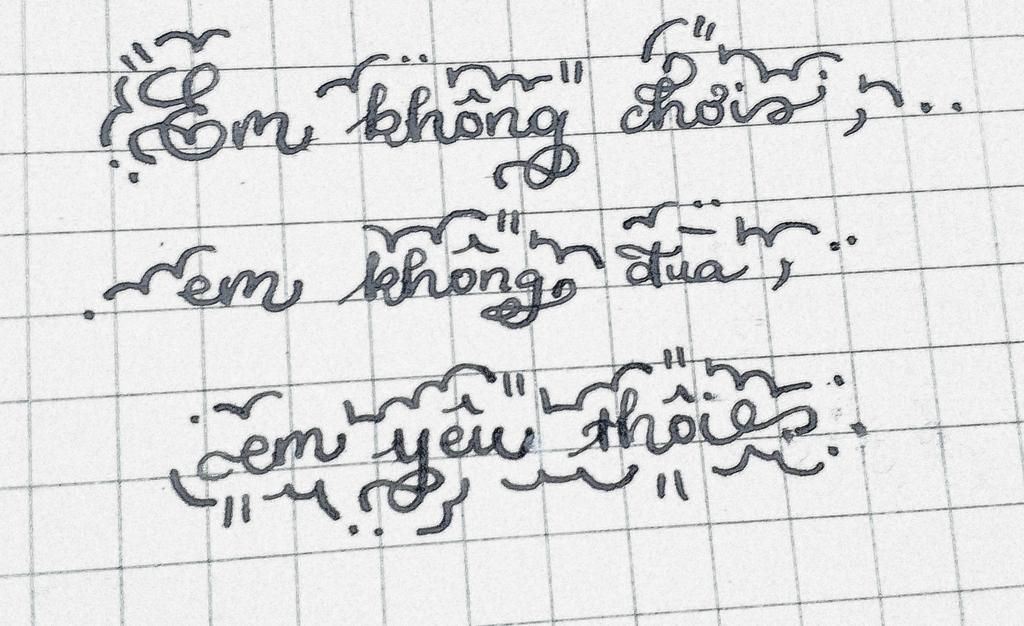 Em không chơi,
em không đùa,
em yêu thôi